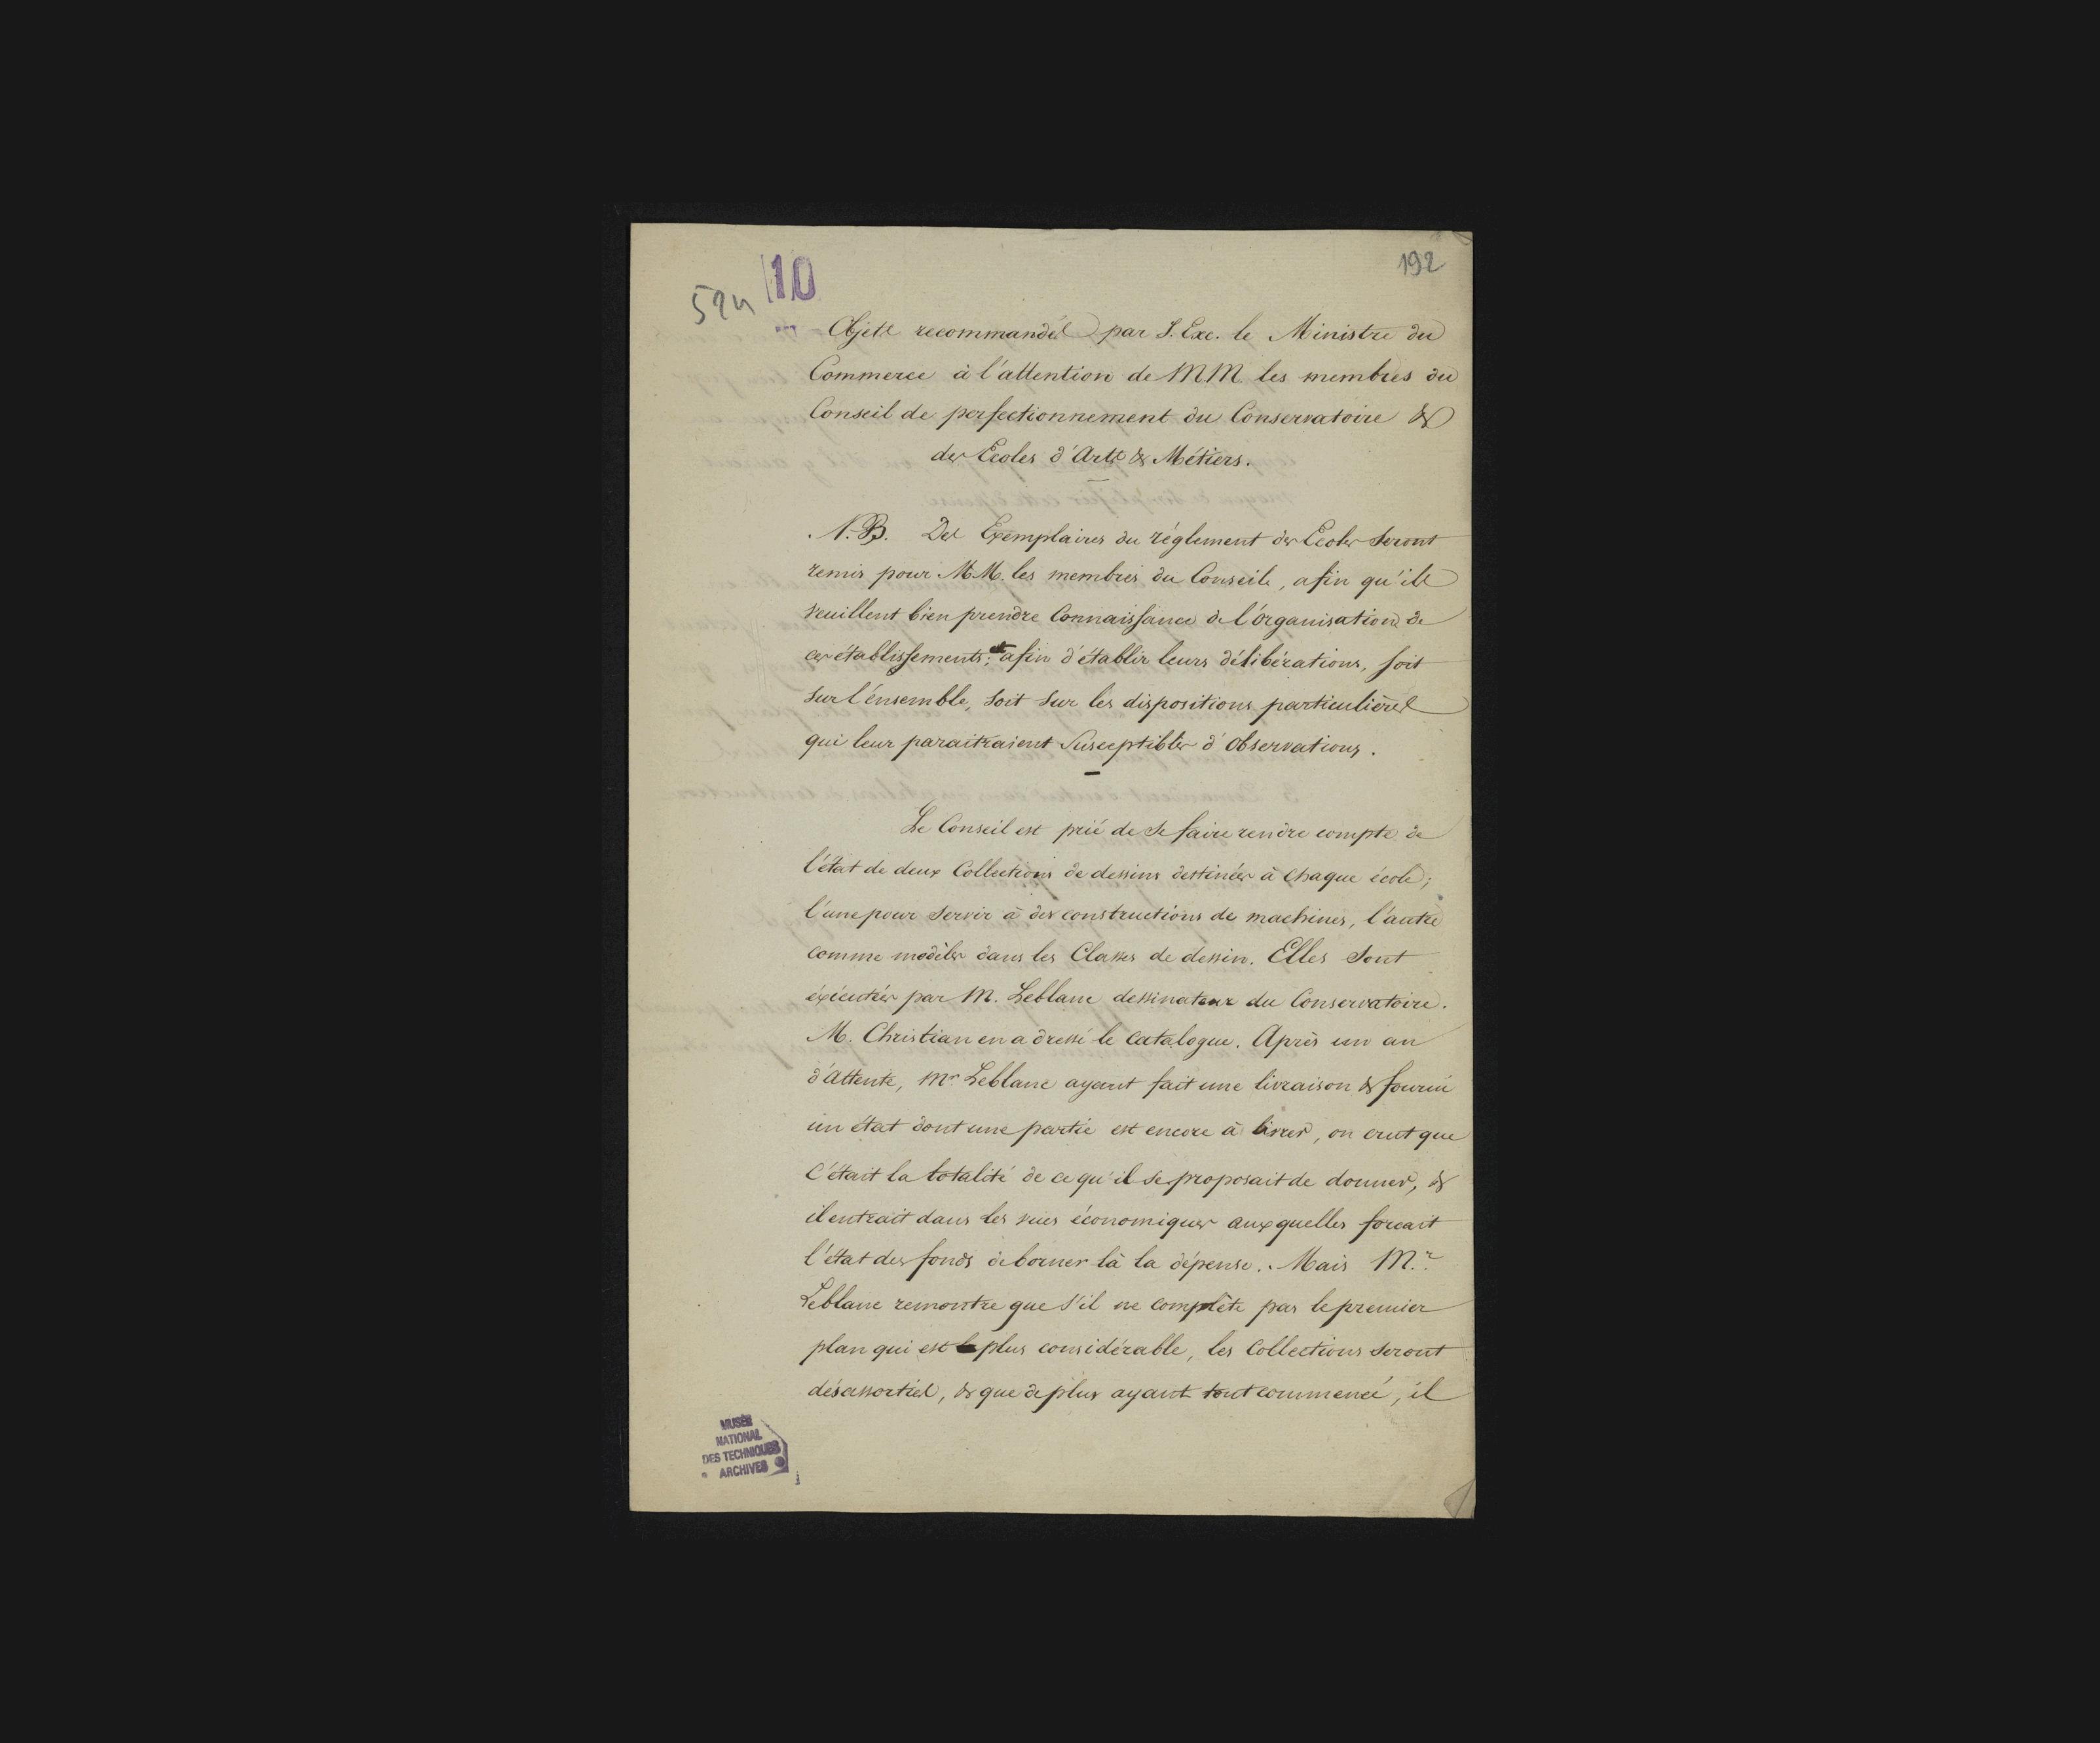 192
10
524
Objets recommandés par S. Exc. le Ministre du
Commerce à l'attention de MM. les membres du
Conseil de perfectionnement du Conservatoire &
des Ecoles d'Arts & Métiers.
N.B. Des Exemplaires du réglement des Ecoles seront
remis pour MM. les membres du Conseil, afin qu'ils
veuillent bien prendre Connaissance de l'Organisation de
ces établissements; et afin d'établir leurs délibérations, soit
sur l'énsemble, soit sur les dispositions particulières
qui leur paraitraient Susceptibles d'Observations.
Le Conseil est prié de se faire rendre compte de
l'état de deux Collections de dessins destinées à chaque école;
l'une pour servir à des constructions de machines, l'autre
comme modèles dans les Classes de dessin. Elles sont
éxécutées par M. Leblanc dessinateur du Conservatoire.
M. Christian en a dressé le catalogue. Après un an
d'attente, Mr Leblanc ayant fait une livraison & fourni
un état dont une partie est encore à livrer, on crut que
c'était la totalité de ce qu'il se proposait de donner, &
il entrait dans les vues économiques auxquelles forcait
l'état des fonds de borner là la dépense. Mais Mr.
Leblanc remontre que s'il ne complète pas le premier
plan qui est le plus considérable, les Collections seront
désassorties, & que de plus ayant tout commencé, il
MUSÉE
NATIONAL
DES TECHNIQUES
ARCHIVES